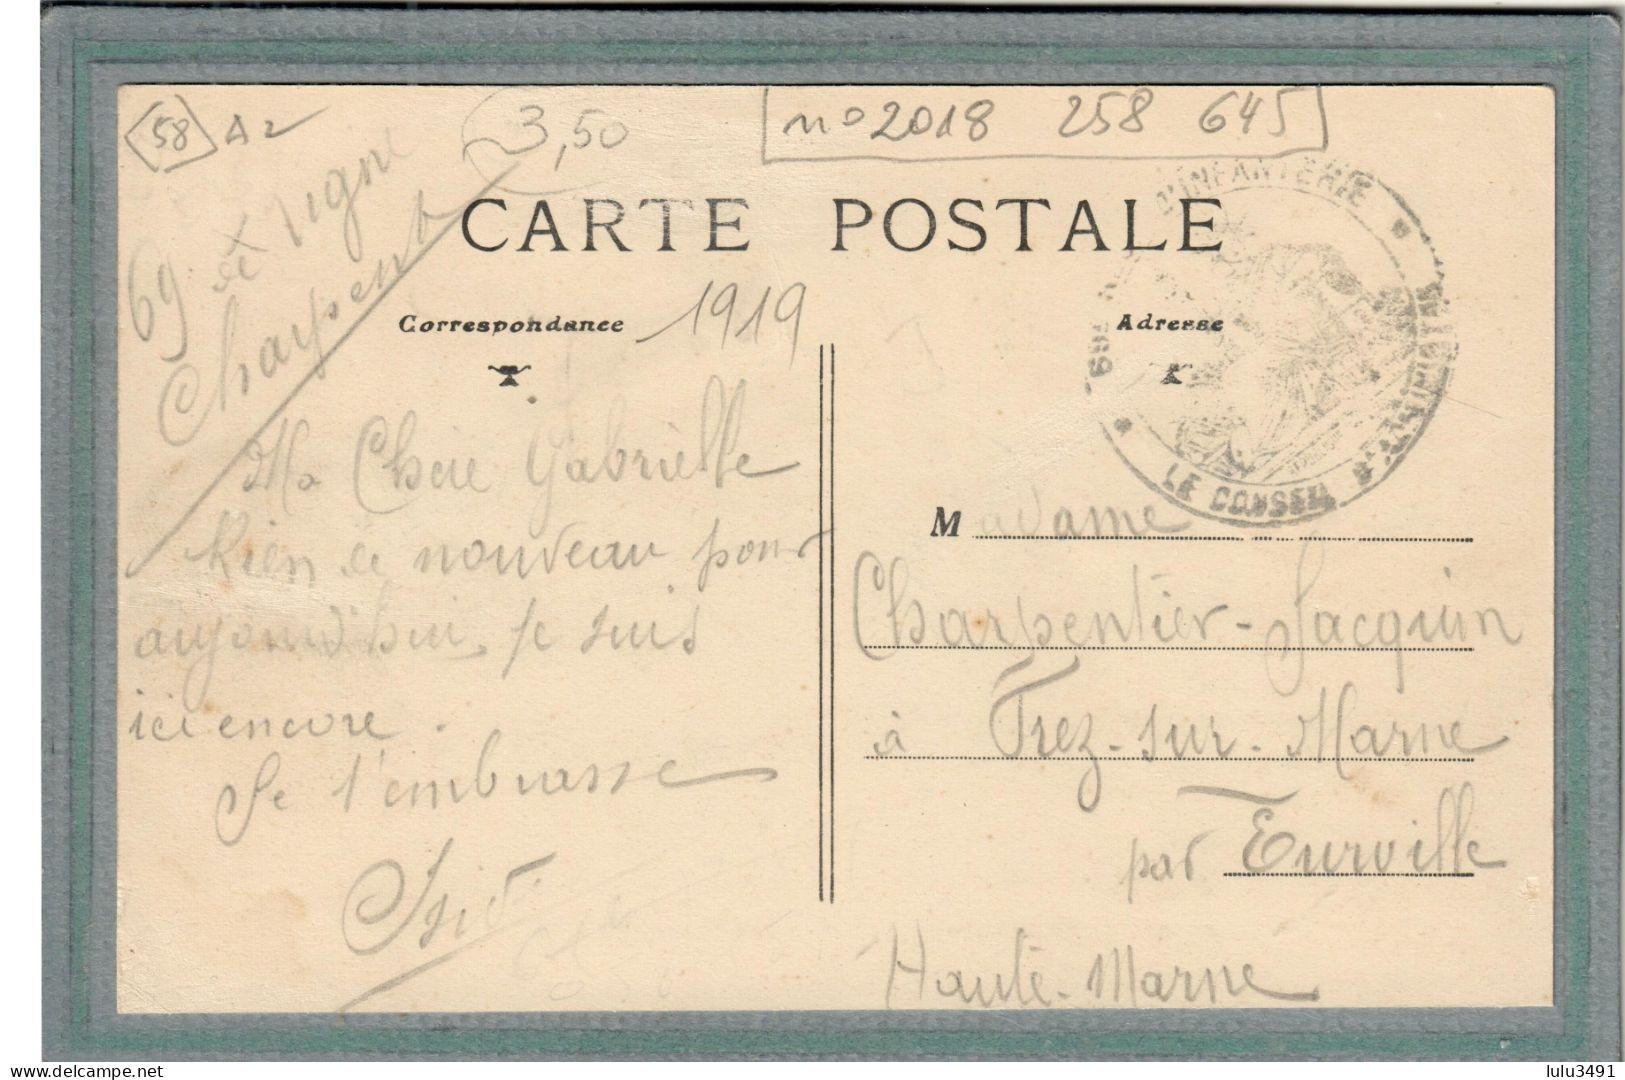 58 A2
3,50
no 2018 258 645
69 de ligne
Charpent
CARTE POSTALE
Correspondance
1919
Adresse
D'INFANTERIE
LE CONSEIL D'ADMINIST
69
Ma Chère Gabrielle
Rien de nouveau pour
aujourd'hui, je suis
ici encore.
Je t'embrasse
Madame
Charpentier-Jacquin
à Frez-sur-Marne
par Eurville
Haute-Marne
lulu3491